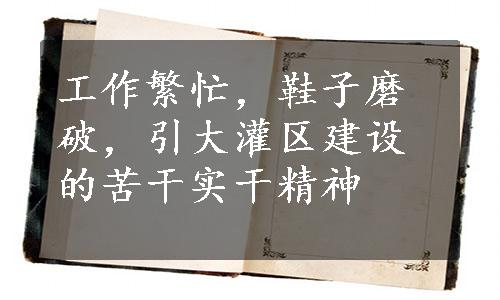 工作繁忙，鞋子磨
破，引大灌区建设
的苦干实干精神